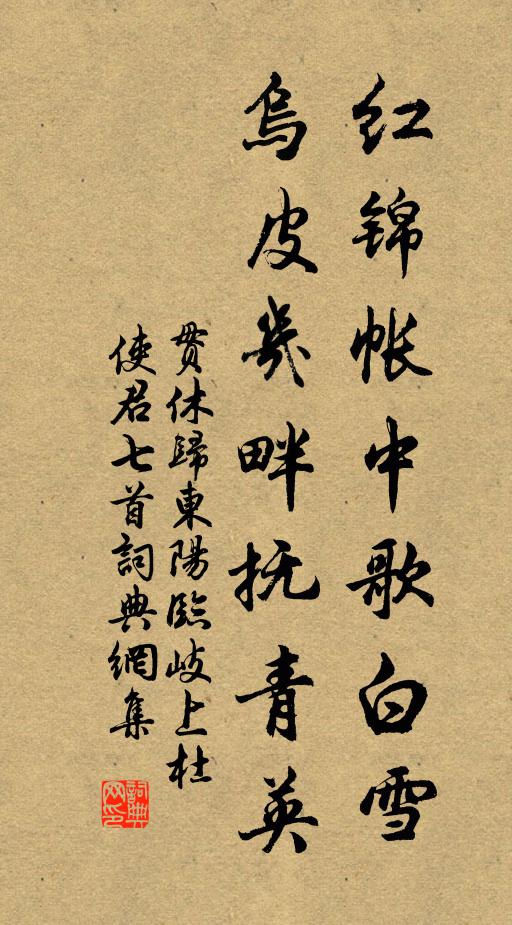 红锦帐中歌白雪
乌皮几畔抚青英
貫休歸東陽臨岐上杜
使君七首詞典網集
詞典网印